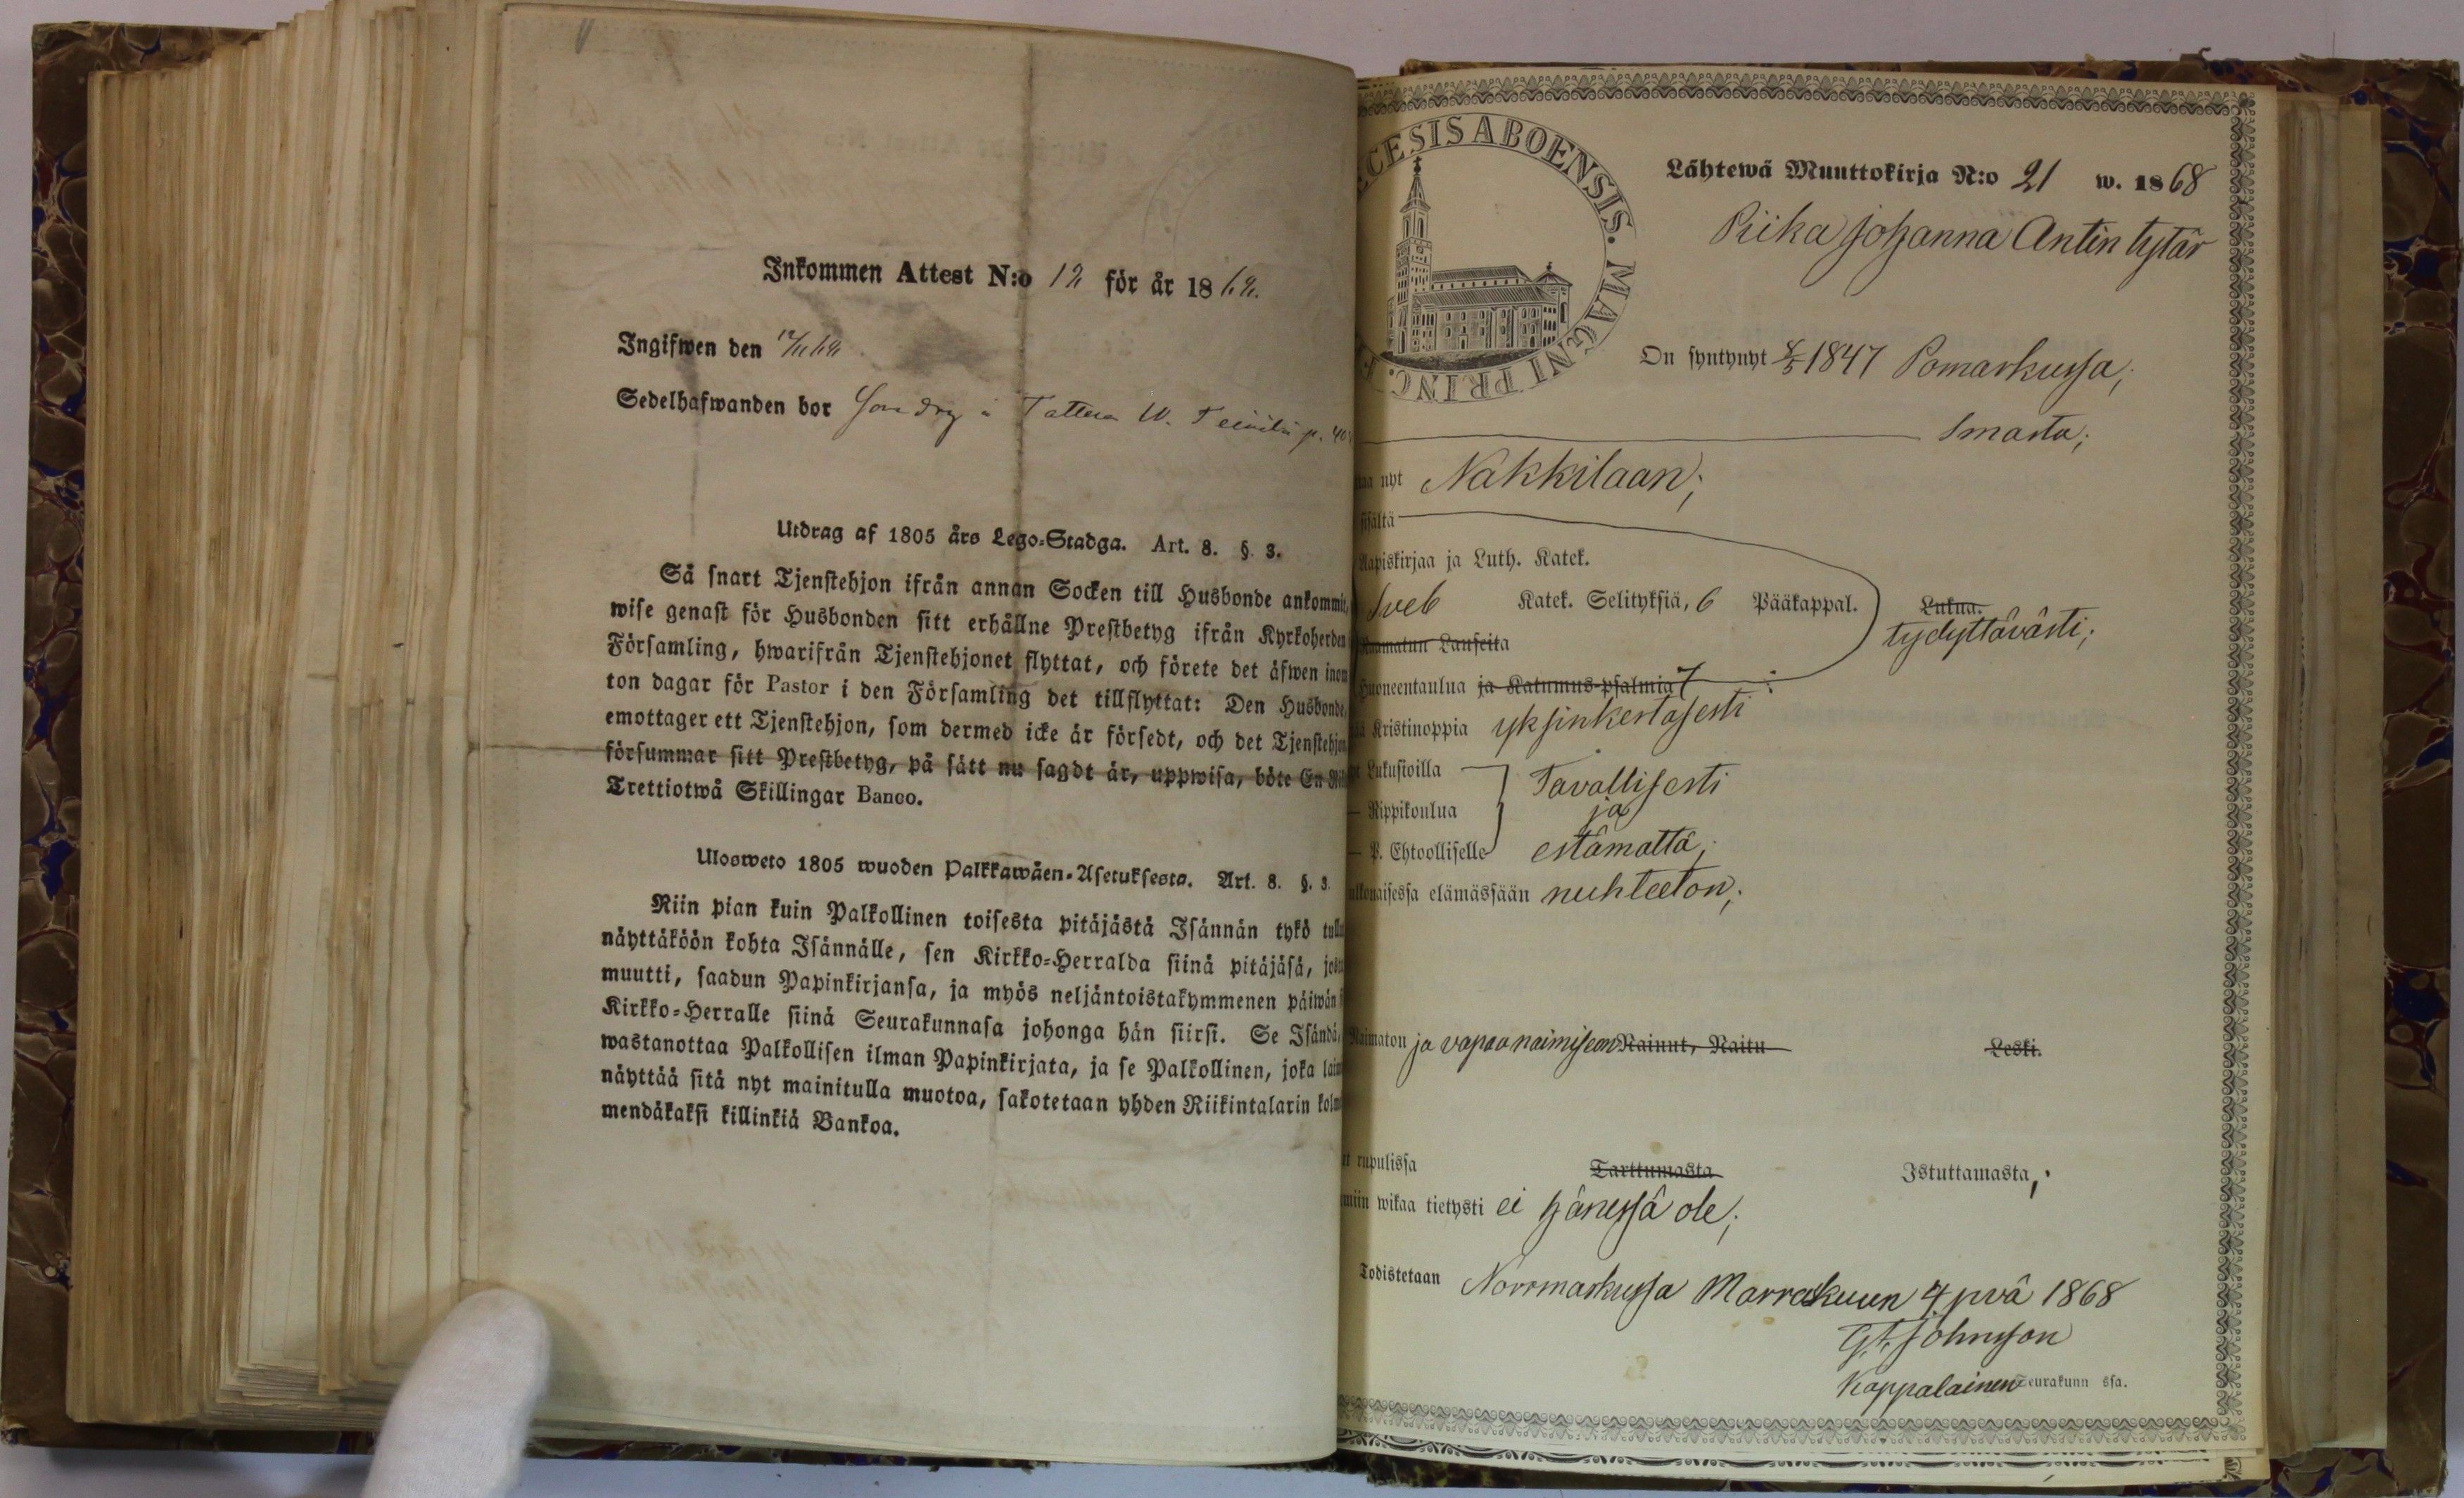 Inkommen Attest N:o 12 för år 18
Ingifwen den
Sedelhafwanden bor
Utdrag af 1805 års Lego-Stadga. Art. 8. §. 3.
Så snart Tjenstehjon ifrån annan Socken till Husbonde ankommit,
wise genast för Husbonden sitt erhållne Prestbetyg ifrån Kyrkoherden
Församling, hwarifrån Tjenstehjonet flyttat, och förete det äfwen inom
ton dagar för Pastor i den Församling det tillflyttat: Den Husbonde,
emottager ett Tjenstehjon, som dermed icke är försedt, och det Tjenstehjon
försummar sitt Prestbetyg, på sätt nu sagdt är, uppwisa, böte En
Trettiotwå Skillingar Banco.
Ulosweto 1805 wuoden Palkkawäen-Asetuksesta. Art. 8. §. 3.
Niin pian kuin Palkollinen toisesta pitäjästä Isännän tykö
näyttäköön kohta Isännälle, sen Kirkko-Herralda siinä pitäjäsä,
muutti, saadun Papinkirjansa, ja myös neljäntoistakymmenen päiwän
Kirkko-Herralle siinä Seurakunnasa johonga hän siirsi. Se Isändä,
wastanottaa Palkollisen ilman Papinkirjata, ja se Palkollinen, joka
näyttää sitä nyt mainitulla muotoa, sakotetaan yhden Riikintalarin
mendäkaksi killinkiä Bankoa.
CESIS ABOENSIS. MAGNI PRINC.
Lähtewä Muuttokirja N:o 21 w. 1868
Piika Johanna Antin tytär
On syntynyt 1847 Pomarkussa;
Smasta;
nyt Nakkilaan;
sisältä
Aapiskirjaa ja Luth. Katek.
Sveb Katek. Selityksiä, 6 Pääkappal. Lukua.
tydyttävästi;
Raamatun Lauseita
Huoneentaulua ja Katumus-psalmia 7
Kristinoppia yksinkertasesti
Lukusioilla Tavallisesti
Rippikoulua ja
P. Ehtoolliselle estämättä;
ulkonaisessa elämässään nuhteeton;
Naimaton ja vapaa naimisean Nainut, Naitu Leski.
rupulissa Tarttumasta Istuttamasta,
wikaa tietysti ei hänessä ole;
Todistetaan Norrmarkussa Marraskuun 4 pvä 1868
G. A. Johnsson
Kappalainen Seurakunn ssa.